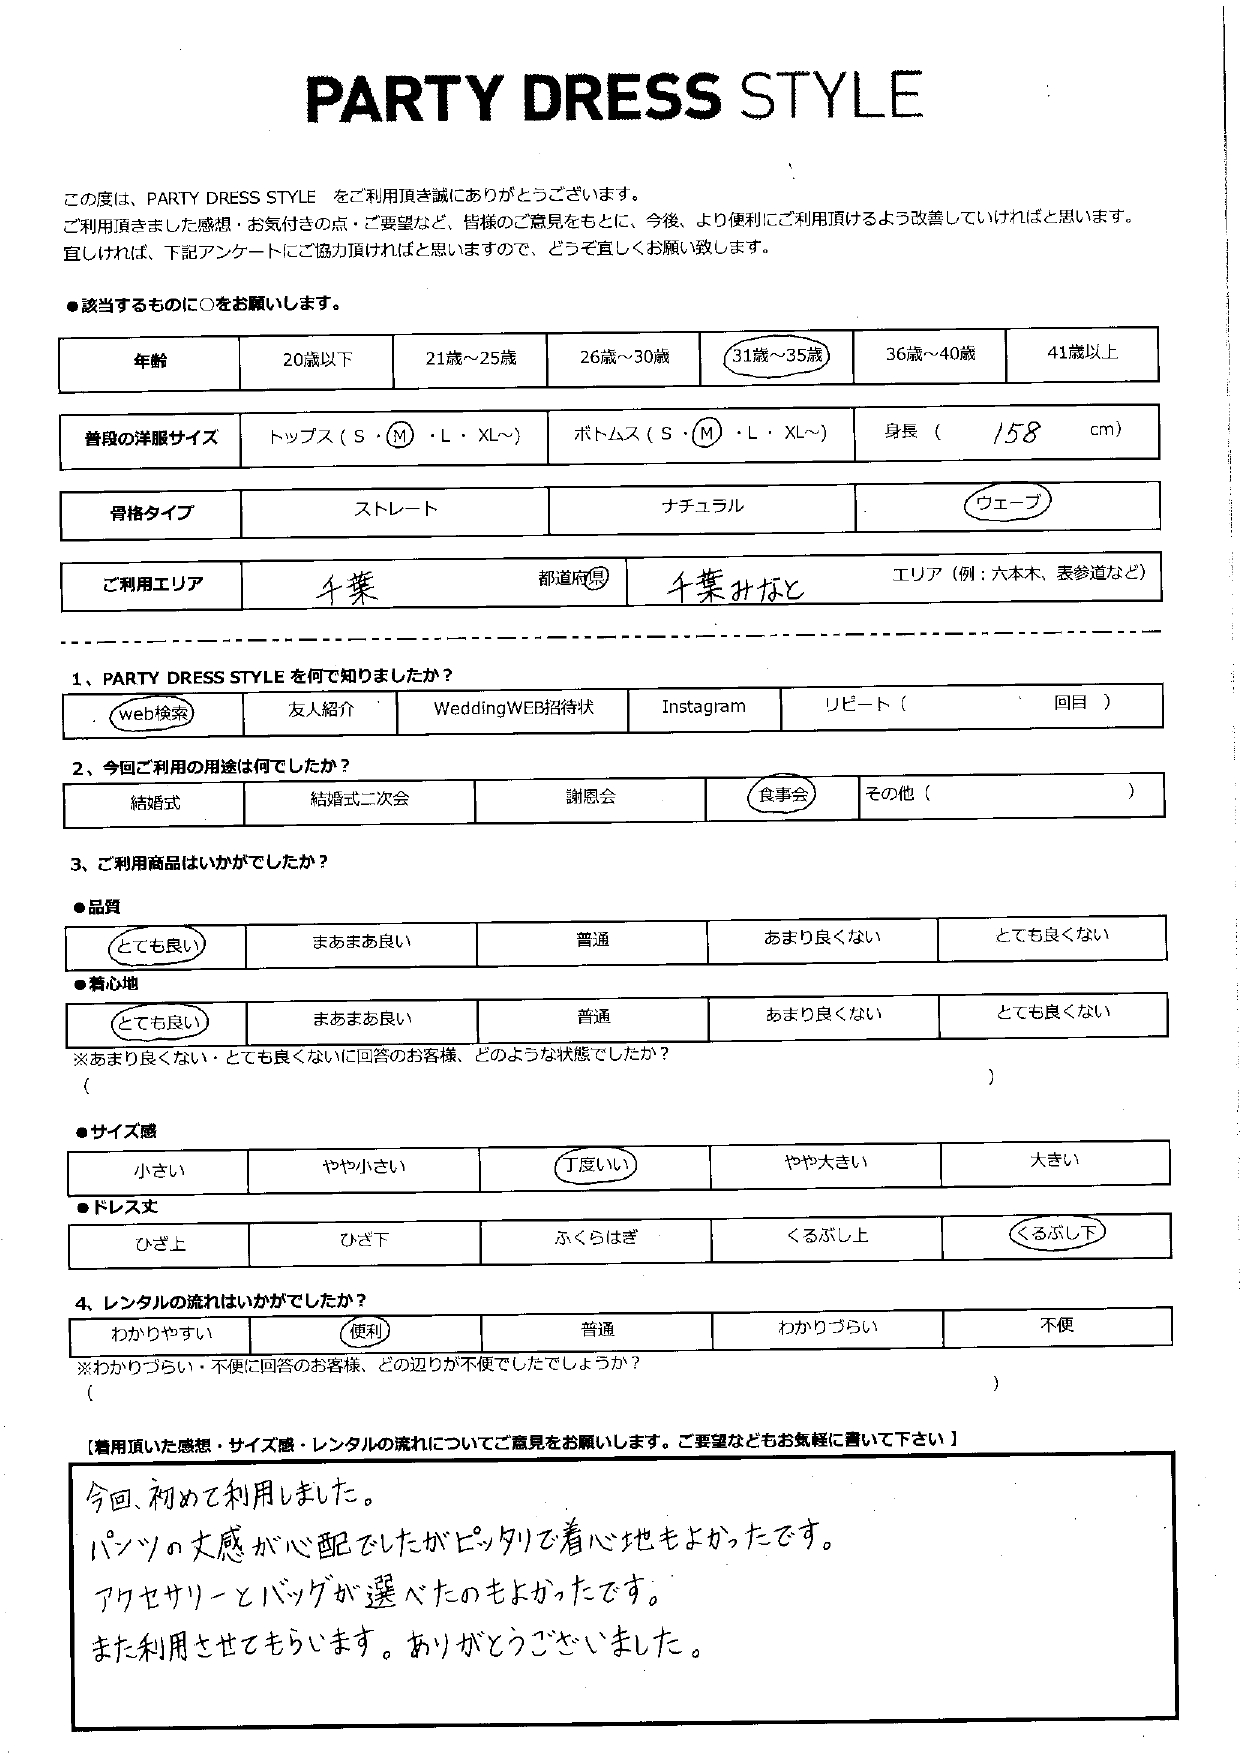 PARTY DRESS STYLE
この度は、PARTY DRESS STYLE をご利用頂き誠にありがとうございます。
ご利用頂きました感想・お気付きの点・ご要望など、皆様のご意見をもとに、今後、より便利にご利用頂けるよう改善していければと思います。
宜しければ、下記アンケートにご協力頂ければと思いますので、どうぞ宜しくお願い致します。
●該当するものに○をお願いします。
年齢 20歳以下 21歳～25歳 26歳～30歳 31歳～35歳 36歳～40歳 41歳以上
普段の洋服サイズ トップス ( S ・ M ・ L ・ XL～) ボトムス ( S ・ M ・ L ・ XL～) 身長 ( 158 cm)
骨格タイプ ストレート ナチュラル ウェーブ
ご利用エリア 千葉 都道府県 千葉みなと エリア（例：六本木、表参道など）
1、PARTY DRESS STYLE を何で知りましたか？
web検索 友人紹介 WeddingWEB招待状 Instagram リピート（ 回目 ）
2、今回ご利用の用途は何でしたか？
結婚式 結婚式二次会 謝恩会 食事会 その他（ ）
3、ご利用商品はいかがでしたか？
●品質
とても良い まあまあ良い 普通 あまり良くない とても良くない
●着心地
とても良い まあまあ良い 普通 あまり良くない とても良くない
※あまり良くない・とても良くないに回答のお客様、どのような状態でしたか？
（ ）
●サイズ感
小さい やや小さい 丁度いい やや大きい 大きい
●ドレス丈
ひざ上 ひざ下 ふくらはぎ くるぶし上 くるぶし下
4、レンタルの流れはいかがでしたか？
わかりやすい 便利 普通 わかりづらい 不便
※わかりづらい・不便に回答のお客様、どの辺りが不便でしたでしょうか？
（ ）
【着用頂いた感想・サイズ感・レンタルの流れについてご意見をお願いします。ご要望などもお気軽に書いて下さい 】
今回、初めて利用しました。
パンツの丈感が心配でしたがピッタリで着心地もよかったです。
アクセサリーとバッグが選べたのもよかったです。
また利用させてもらいます。ありがとうございました。